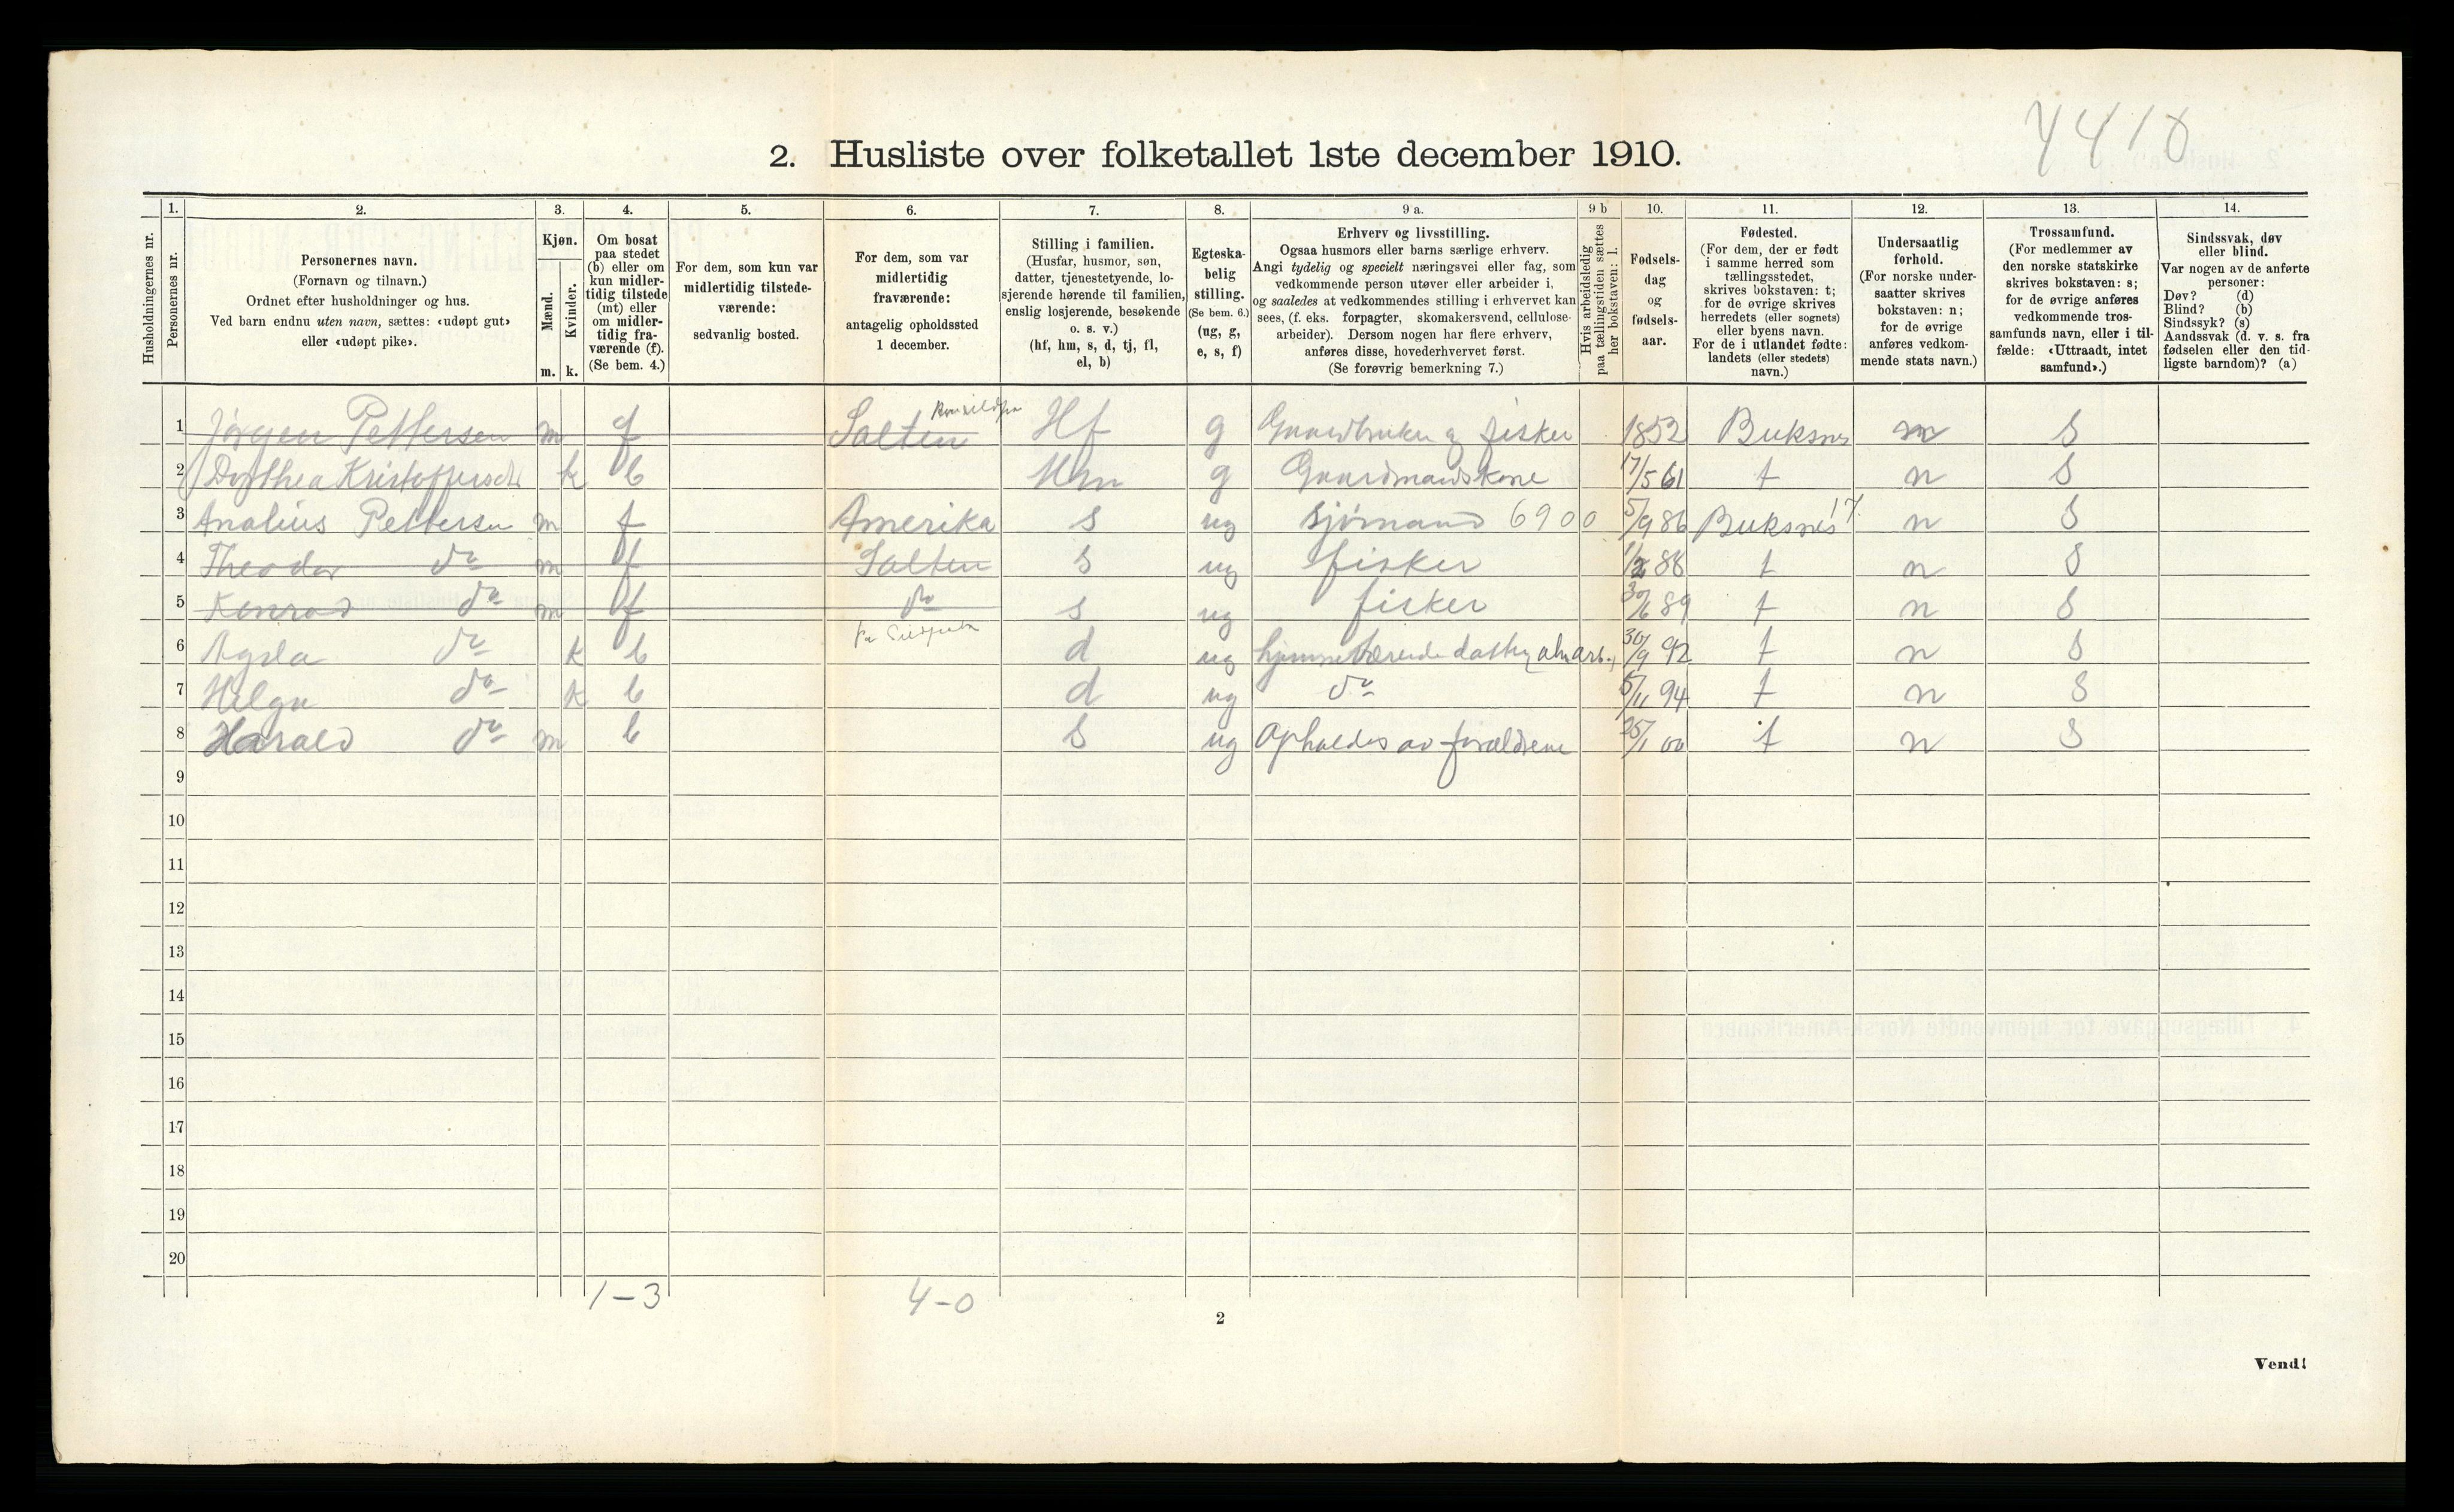 4410
2. Husliste over folketallet 1ste december 1910.
Husholdningernes nr.
1. Personernes nr.
2. Personernes navn.
(Fornavn og tilnavn.)
Ordnet efter husholdninger og hus.
Ved barn endnu uten navn, sættes: «udøpt gut»
eller «udøpt pike».
3. Kjøn.
Mænd. Kvinder.
m. k.
4. Om bosat
paa stedet
(b) eller om
kun midler-
tidig tilstede
(mt) eller
om midler-
tidig fra-
værende (f).
(Se bem. 4.)
5. For dem, som kun var
midlertidig tilstede-
værende:
sedvanlig bosted.
6. For dem, som var
midlertidig
fraværende:
antagelig opholdssted
1 december.
7. Stilling i familien.
(Husfar, husmor, søn,
datter, tjenestetyende, lo-
sjerende hørende til familien,
enslig losjerende, besøkende
o. s. v.)
(hf, hm, s, d, tj, fl,
el, b)
8. Egteska-
belig
stilling.
(Se bem. 6.)
(ug, g,
e, s, f)
9 a. Erhverv og livsstilling.
Ogsaa husmors eller barns særlige erhverv.
Angi tydelig og specielt næringsvei eller fag, som
vedkommende person utøver eller arbeider i,
og saaledes at vedkommendes stilling i erhvervet kan
sees, (f. eks. forpagter, skomakersvend, cellulose-
arbeider). Dersom nogen har flere erhverv,
anføres disse, hovederhvervet først.
(Se forøvrig bemerkning 7.)
9 b Hvis arbeidsledig
paa tællingstiden sættes
her bokstaven: l.
10. Fødsels-
dag
og
fødsels-
aar.
11. Fødested.
(For dem, der er født
i samme herred som
tællingsstedet,
skrives bokstaven: t;
for de øvrige skrives
herredets (eller sognets)
eller byens navn.
For de i utlandet fødte:
landets (eller stedets)
navn.)
12. Undersaatlig
forhold.
(For norske under-
saatter skrives
bokstaven: n;
for de øvrige
anføres vedkom-
mende stats navn.)
13. Trossamfund.
(For medlemmer av
den norske statskirke
skrives bokstaven: s;
for de øvrige anføres
vedkommende tros-
samfunds navn, eller i til-
fælde: «Uttraadt, intet
samfund».)
14. Sindssvak, døv
eller blind.
Var nogen av de anførte
personer:
Døv? (d)
Blind? (b)
Sindssyk? (s)
Aandssvak (d. v. s. fra
fødselen eller den tid-
ligste barndom)? (a)
1 Jørgen Pettersen m f Salten Hf g Gaardbruker og fisker 1852 Buksnes n S
2 Dorthea Kristoffersdt k b Hm g Gaardmandskone 17/5 61 t n S
3 Analius Pettersen m f Amerika s ug Sjømand 6900 5/9 86 Buksnes 17 n S
4 Theodor do m f Salten s ug fisker 88 t n S
5 Konrad do m f do s ug fisker 30/6 89 t n S
6 Agda do k b d ug hjemmeværende datter alm arb. 30/9 92 t n S
7 Helga do k b d ug do 5/11 94 t n S
8 Harald do m b s ug Opholdes av forældrene 25/1 00 t n S
9
10
11
12
13
14
15
16
17
18
19
20
1-3 4-0
2
Vend!